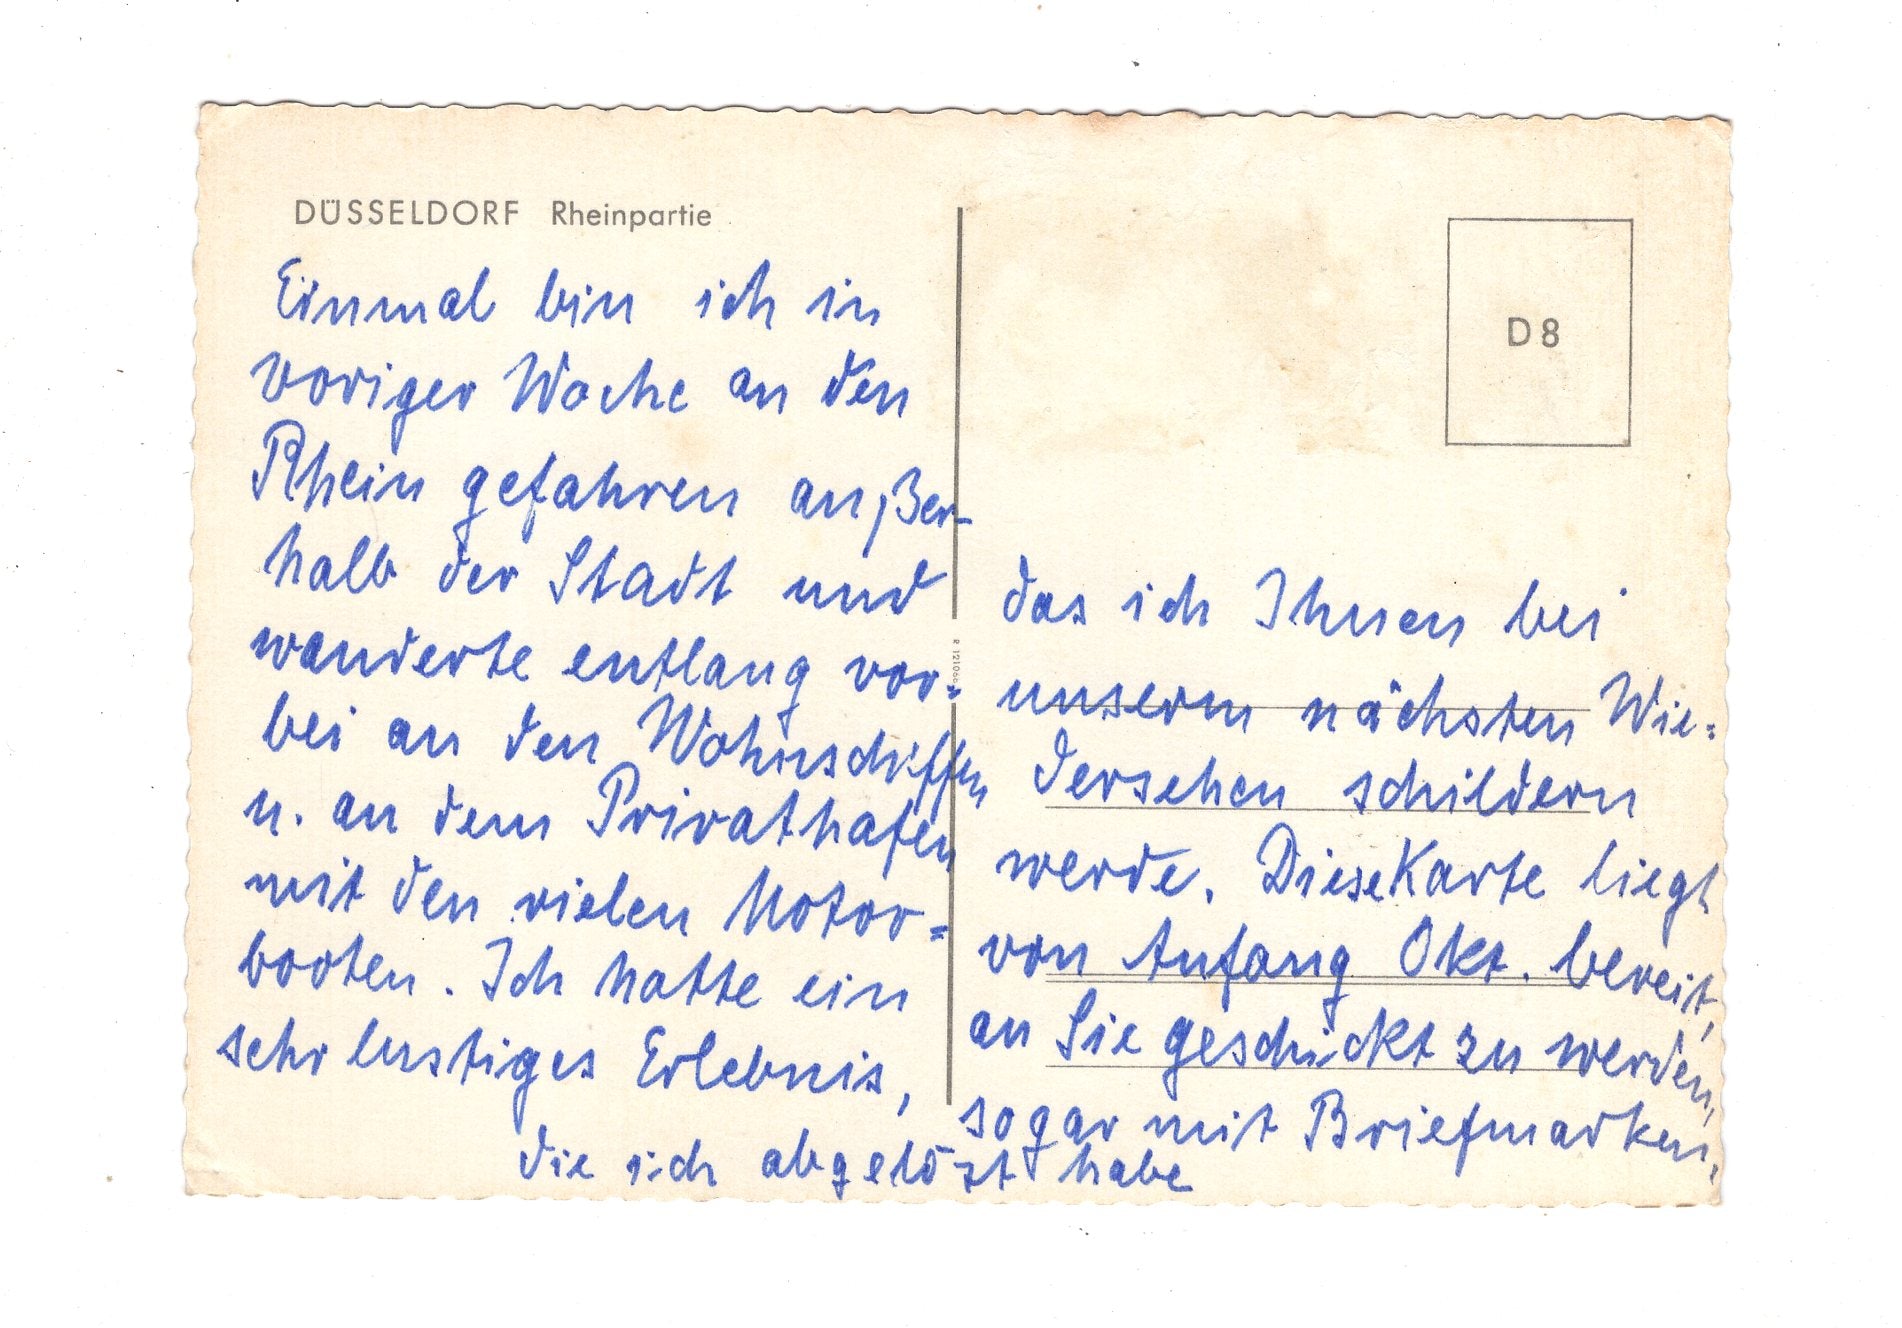 DÜSSELDORF Rheinpartie
Einmal bin ich in
voriger Woche an den
Rhein gefahren außer-
halb der Stadt und
wanderte entlang vor=
bei an den Wohnschiffen
u. an dem Privathafen
mit den vielen Motor=
booten. Ich hatte ein
sehr lustiges Erlebnis,
D8
das ich Ihnen bei
unserm nächsten Wie=
dersehen schildern
werde. Diese Karte liegt
von Anfang Okt. bereit,
an Sie geschickt zu werden,
sogar mit Briefmarken,
die ich abgelözt habe